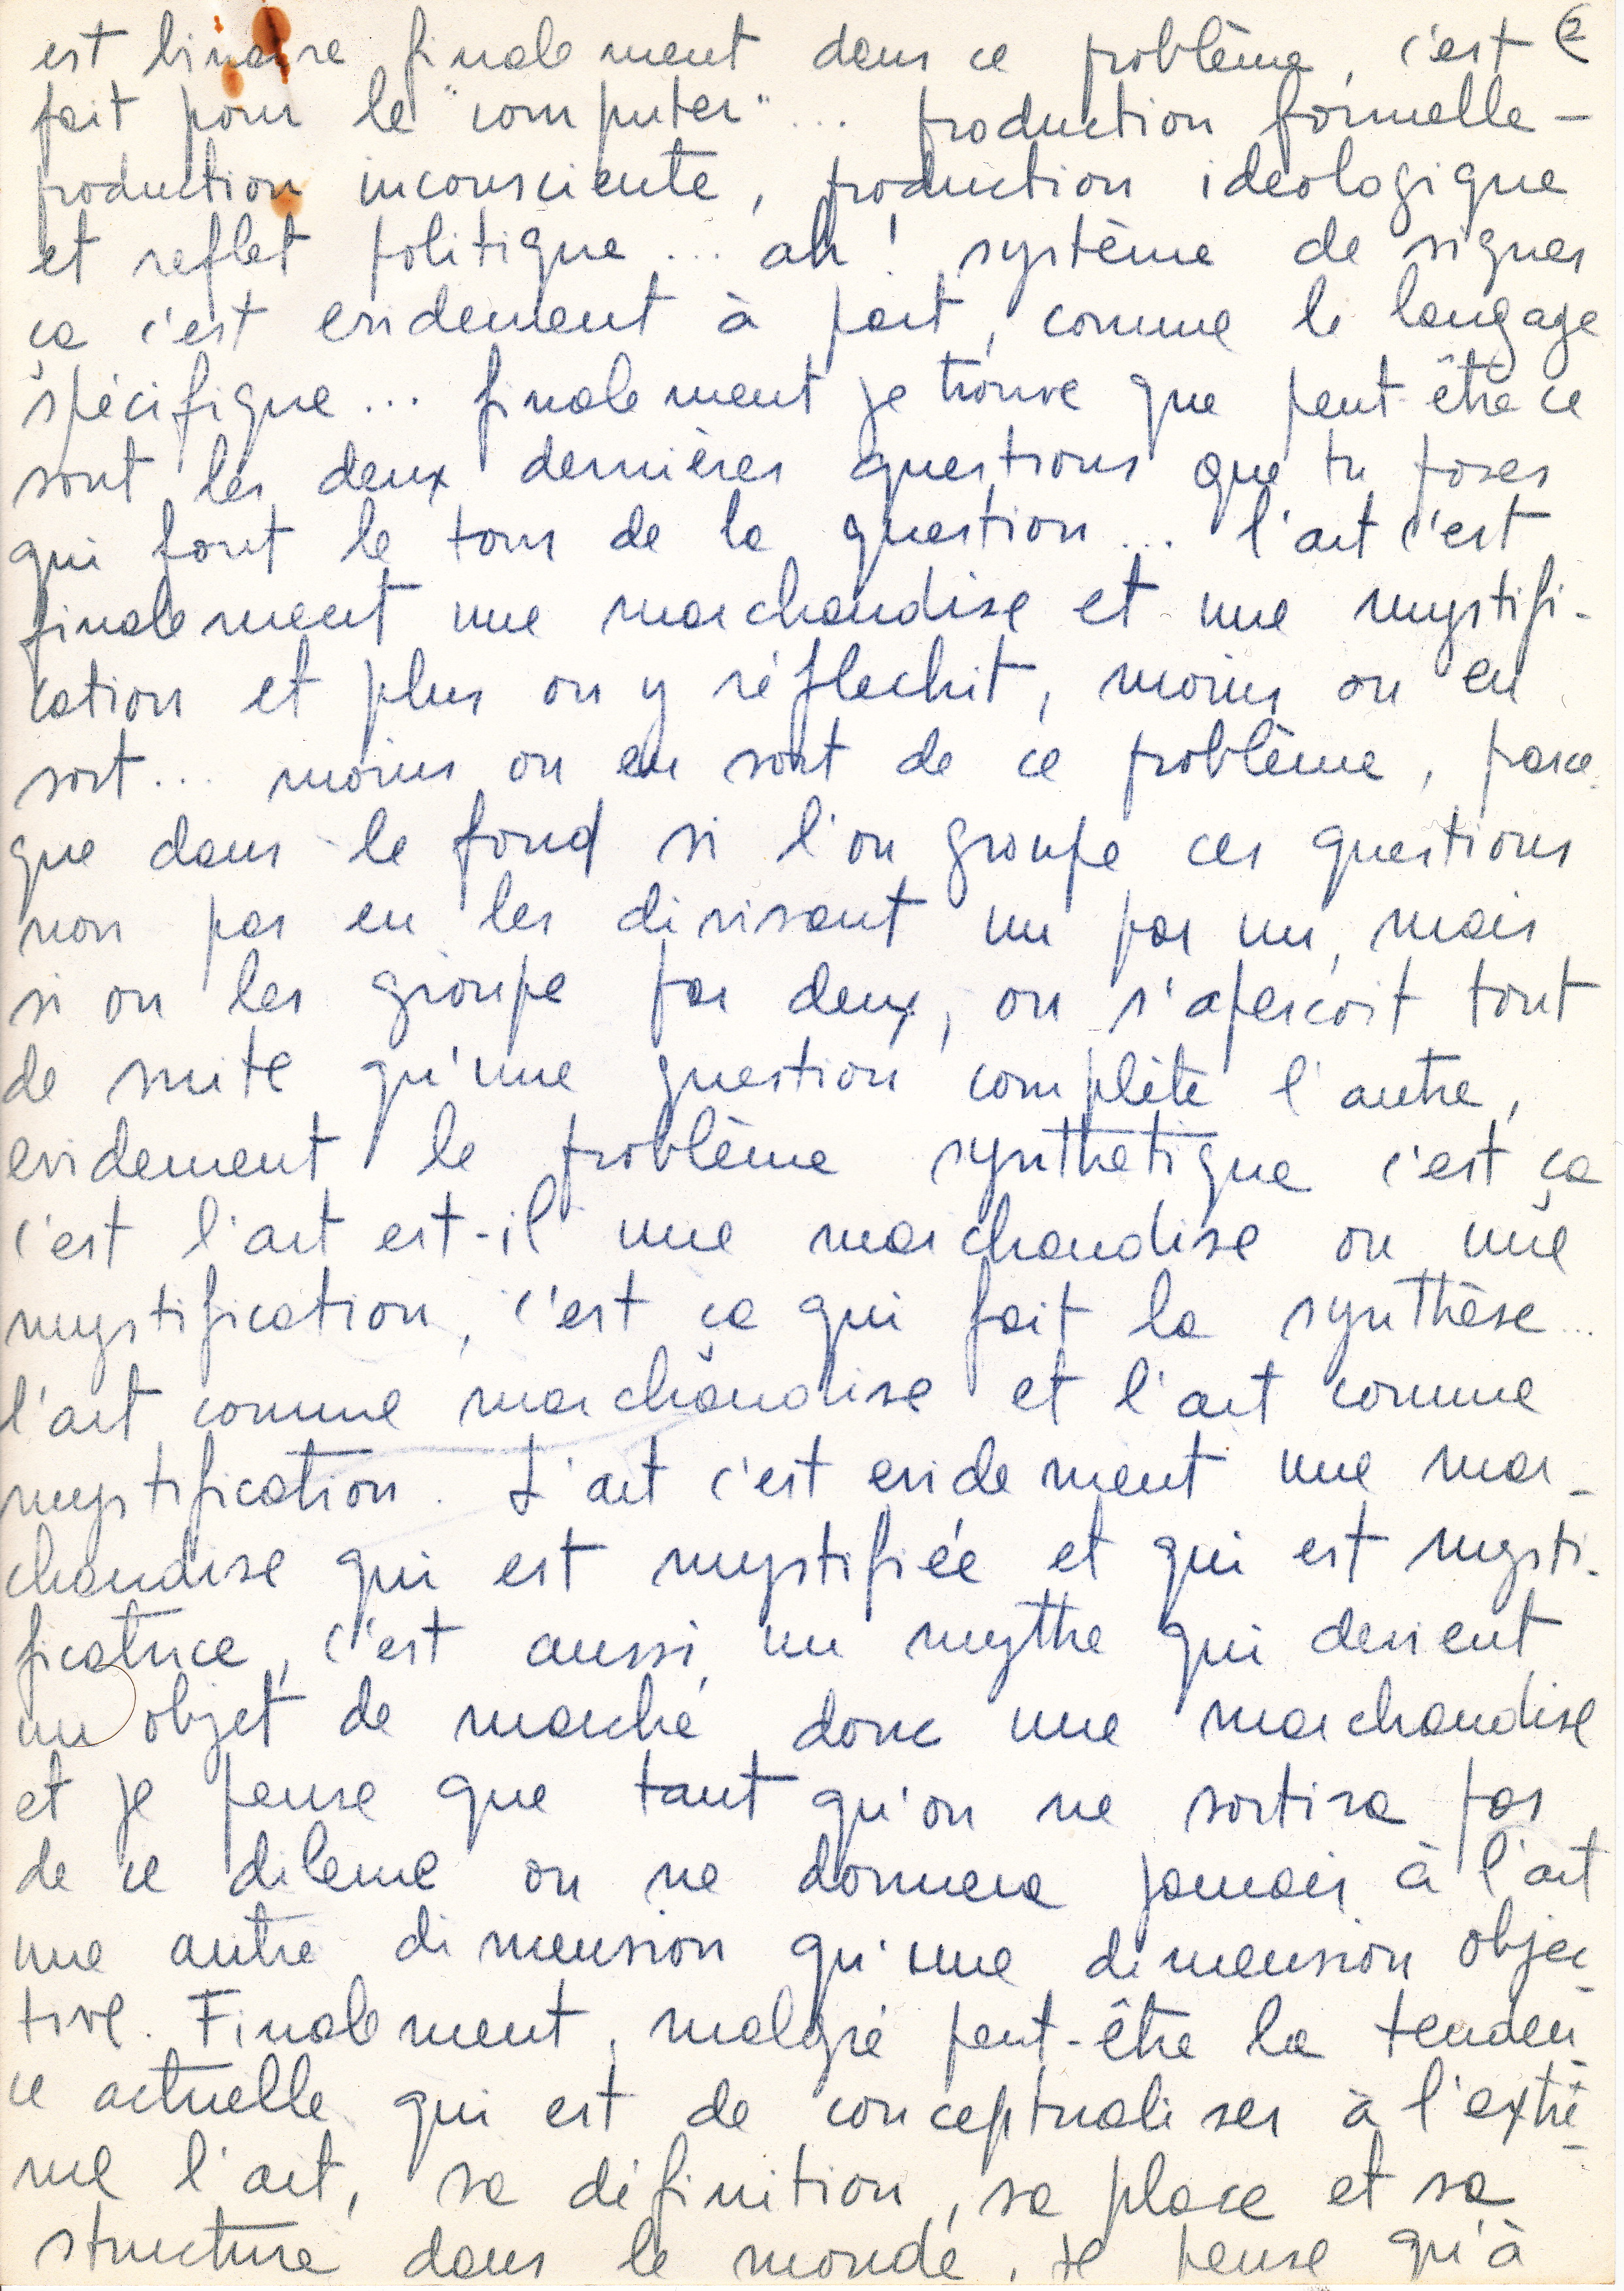 est binaire finalement dans ce problème, c'est
fait pour le "computer" ... production formelle -
production inconsciente, production ideologique
et reflet politique ... ah! système de signes
ça c'est evidement à part, comme le langage
spécifique ... finalement je trouve que peut-être ce
sont les deux dernières questions que tu poses
qui font le tour de la question ... l'art c'est
finalement une marchandise et une mystifi-
cation et plus on y réflechit, moins on en
sort ... moins on en sort de ce problème, parce-
que dans le fond si l'on groupe ces questions
non pas en les divisant un par un, mais
si on les groupe par deux, on s'aperçoit tout
de suite qu'une question complète l'autre,
evidement le problème synthetique c'est ça
c'est l'art est-il une marchandise ou une
mystification, c'est ça qui fait la synthèse ...
l'art comme marchandise et l'art comme
mystification. L'art c'est evidement une mar-
chandise qui est mystifiée et qui est mysti-
ficatrice, c'est aussi un mythe qui devient
un objet de marché donc une marchandise
et je pense que tant qu'on ne sortira pas
de ce dileme on ne donnera jamais à l'art
une autre dimension qu'une dimension objec-
tive. Finalement, malgré peut-être la tenden-
ce actuelle qui est de conceptualiser à l'extrê-
me l'art, sa définition, sa place et sa
structure dans le monde, je pense qu'à